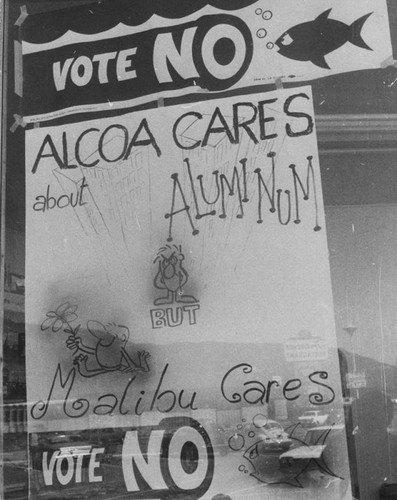 VOTE NO
ALCOA CARES
about ALUMINUM
BUT
Malibu Cares
VOTE NO